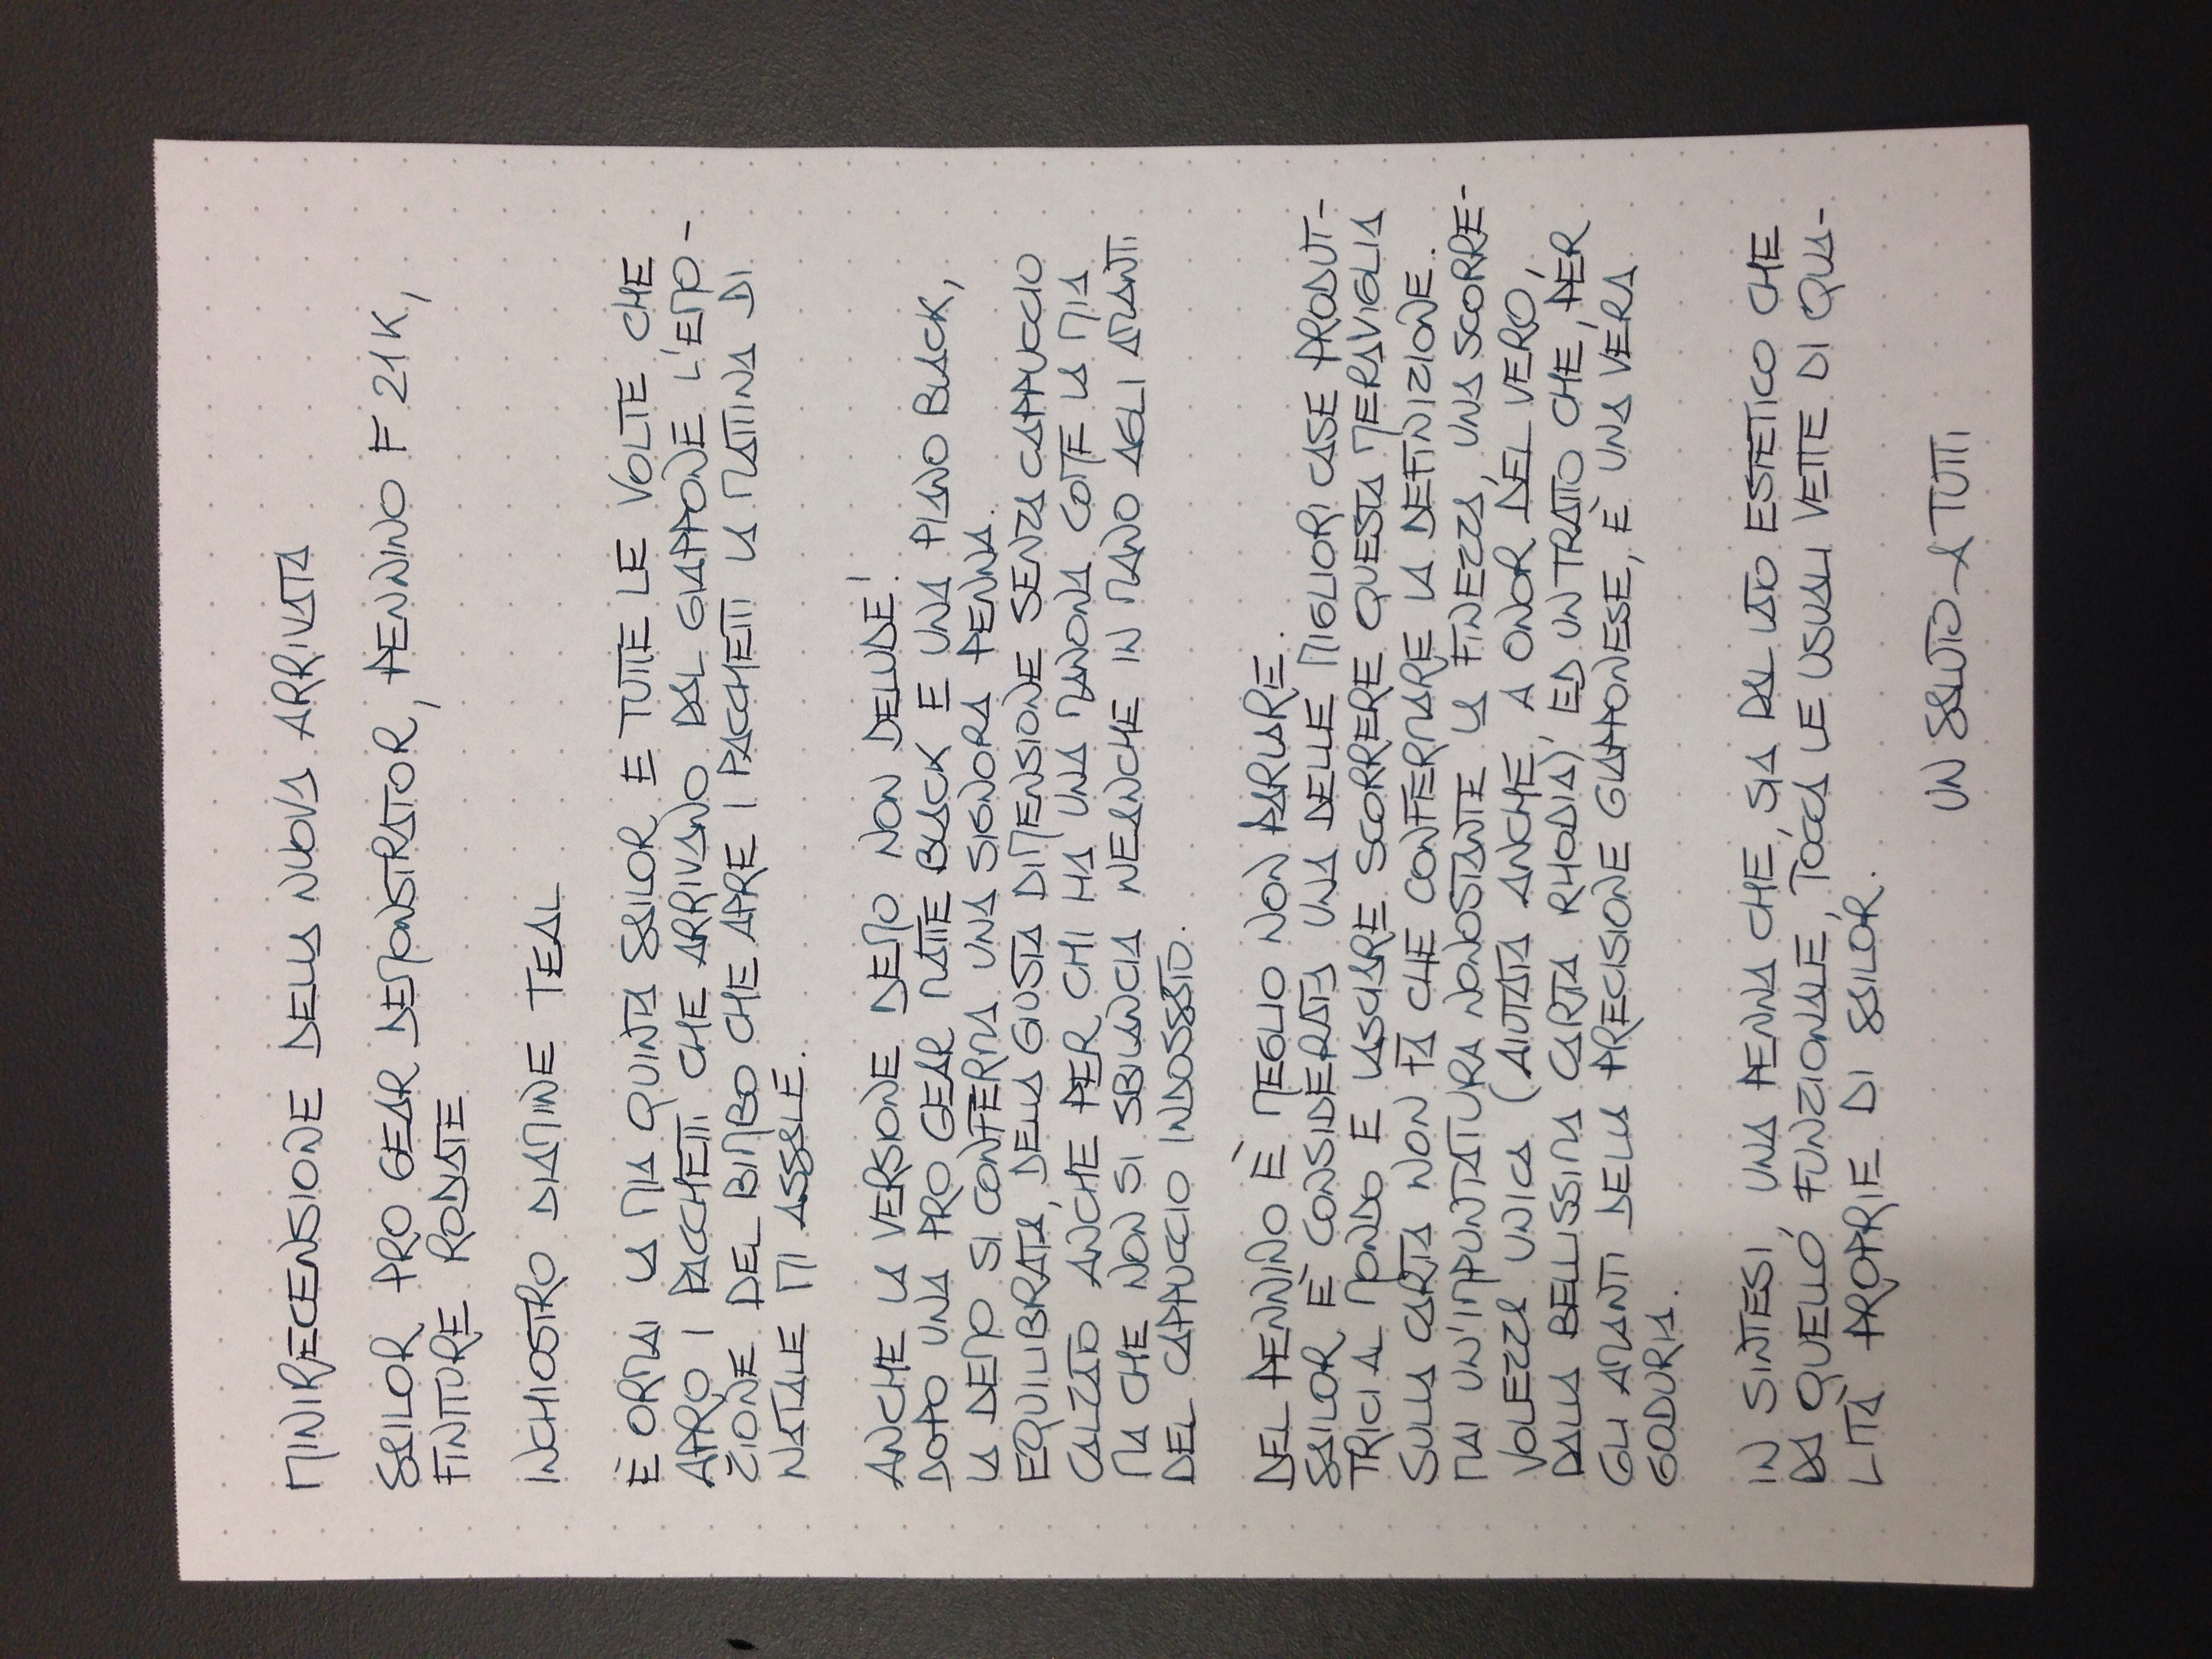 MINIRECENSIONE DELLA NUOVA ARRIVATA
SAILOR PRO GEAR DEMONSTRATOR, PENNINO F 21K,
FINITURE RODIATE
INCHIOSTRO DIAMINE TEAL
È ORMAI LA MIA QUINTA SAILOR E TUTTE LE VOLTE CHE
APRO I PACCHETTI CHE ARRIVANO DAL GIAPPONE L'EMO-
ZIONE DEL BIMBO CHE APRE I PACCHETTI LA MATTINA DI
NATALE MI ASSALE.
ANCHE LA VERSIONE DEMO NON DELUDE!
DOPO UNA PRO GEAR MATTE BLACK E UNA PIANO BLACK,
LA DEMO SI CONFERMA UNA SIGNORA PENNA.
EQUILIBRATA, DELLA GIUSTA DIMENSIONE SENZA CAPPUCCIO
CALZATO ANCHE PER CHI HA UNA MANONA COME LA MIA
MA CHE NON SI SBILANCIA NEANCHE IN MANO AGLI AMANTI
DEL CAPPUCCIO INDOSSATO.
DEL PENNINO È MEGLIO NON PARLARE.
SAILOR È CONSIDERATA UNA DELLE MIGLIORI CASE PRODUT-
TRICI AL MONDO E LASCIARE SCORRERE QUESTA MERAVIGLIA
SULLA CARTA NON FA CHE CONFERMARE LA DEFINIZIONE.
MAI UN'IMPUNTATURA NONOSTANTE LA FINEZZA, UNA SCORRE-
VOLEZZA UNICA (AIUTATA ANCHE, A ONOR DEL VERO,
DALLA BELLISSIMA CARTA RHODIA) ED UN TRATTO CHE, PER
GLI AMANTI DELLA PRECISIONE GIAPPONESE, È UNA VERA
GODURIA.
IN SINTESI, UNA PENNA CHE, SIA DAL LATO ESTETICO CHE
DA QUELLO FUNZIONALE, TOCCA LE USUALI VETTE DI QUA-
LITÀ PROPRIE DI SAILOR.
UN SALUTO A TUTTI